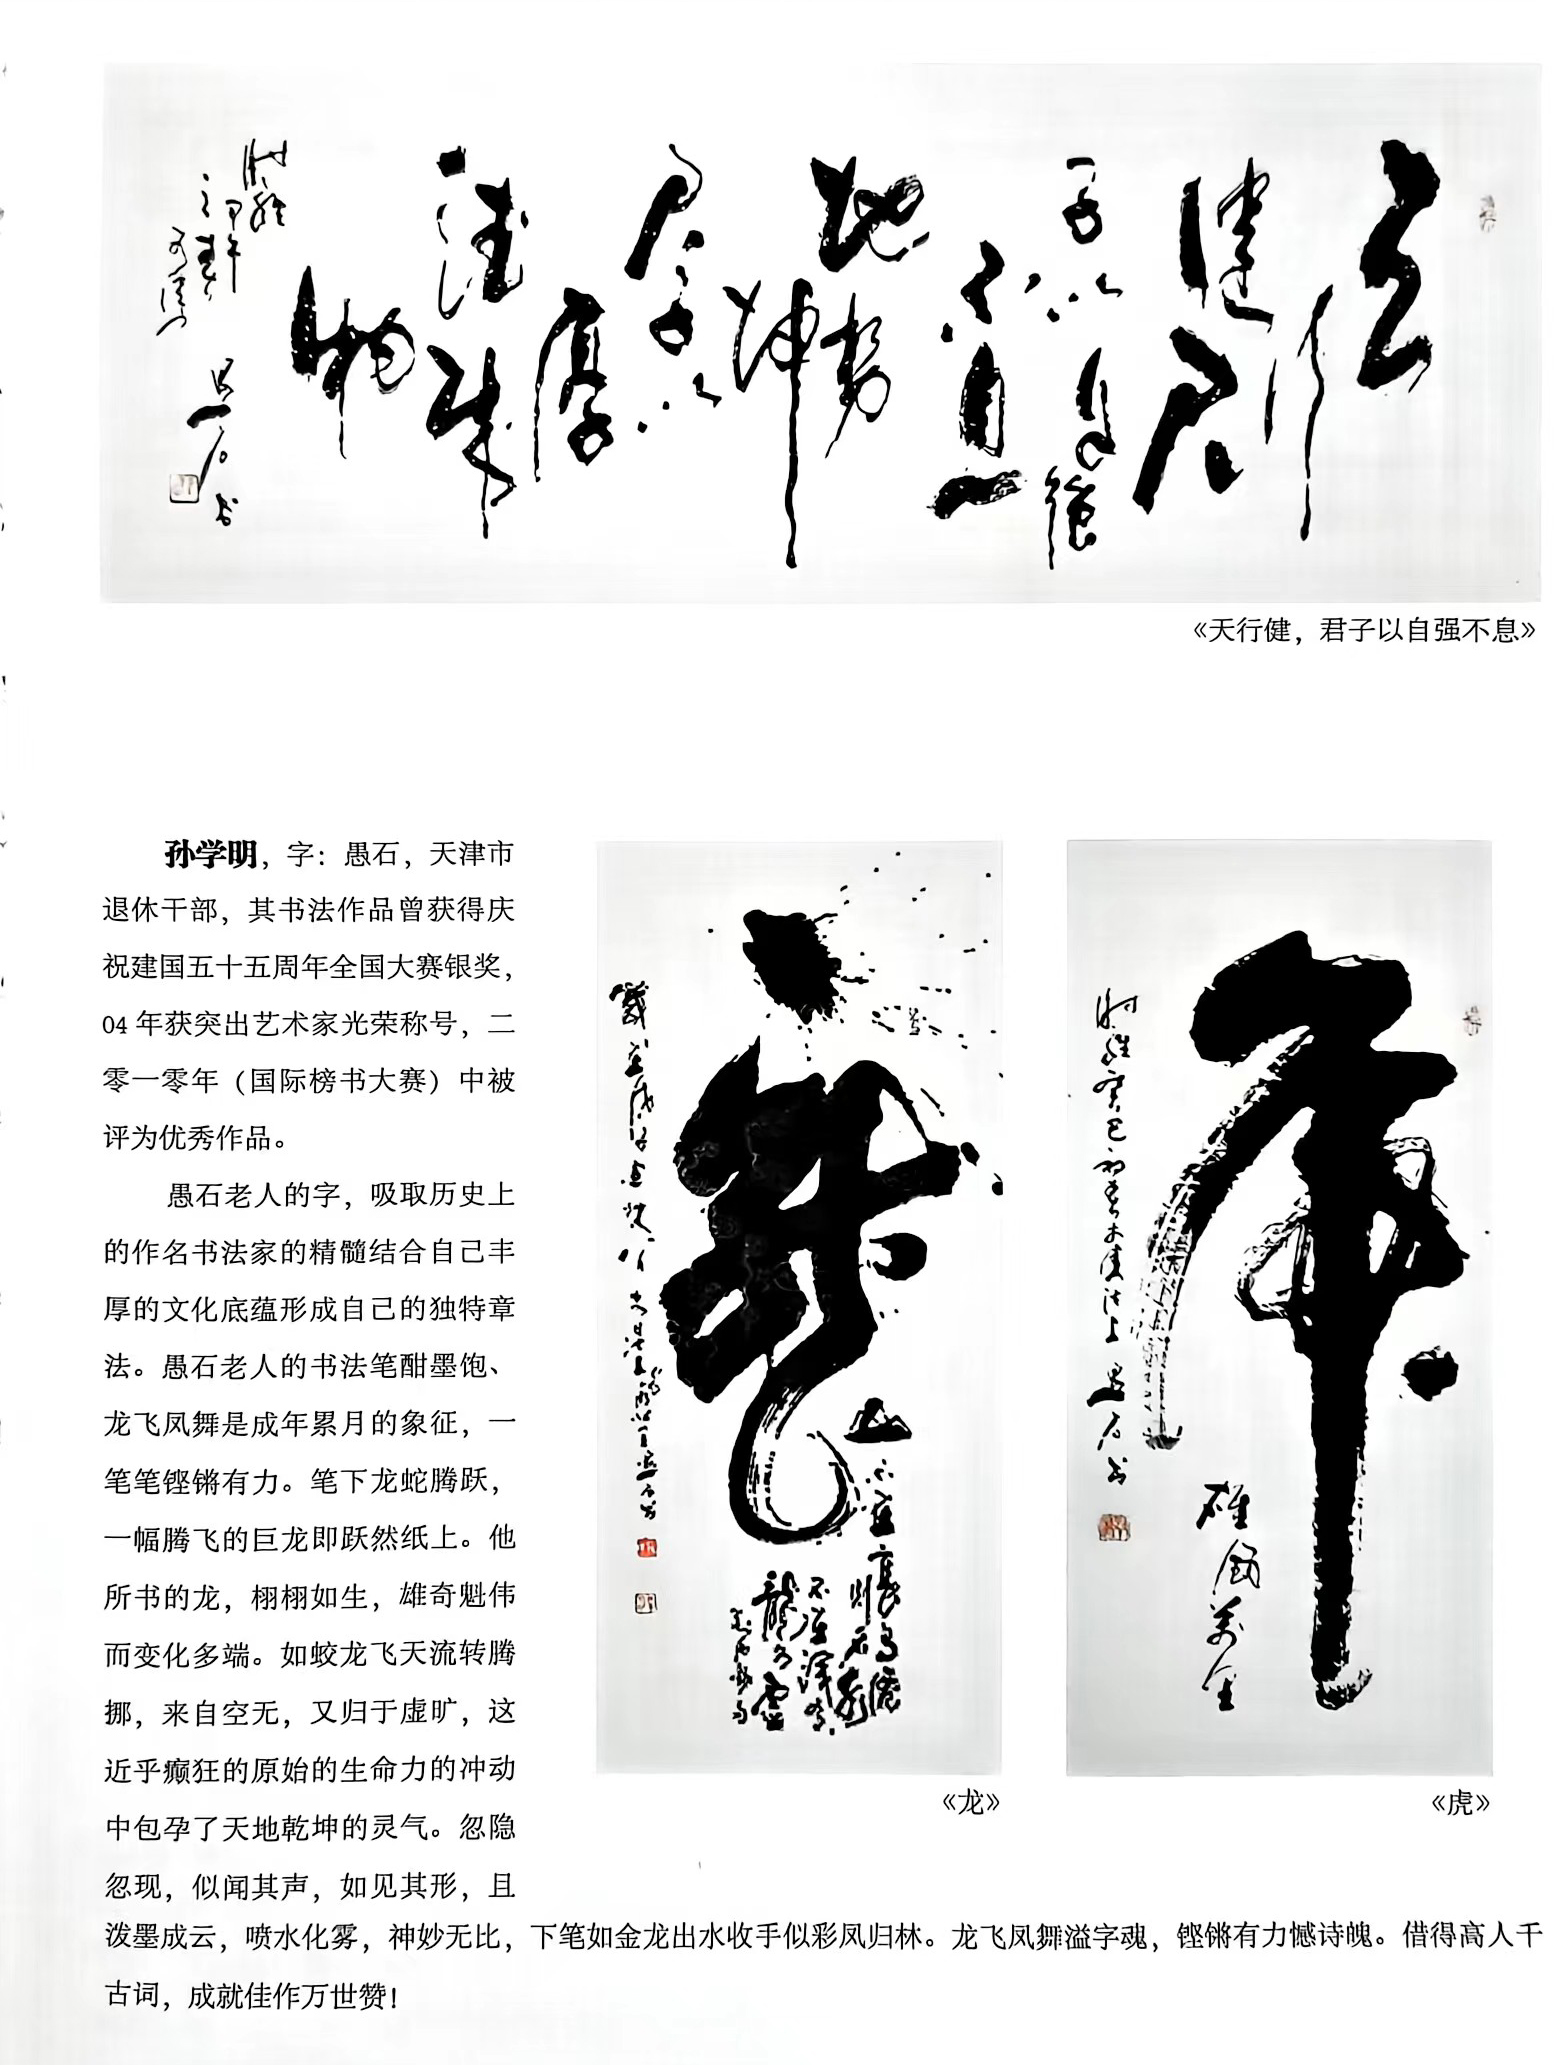 天
行
健
君子以
自强
不息
地势
坤
君子以
厚
德载
物
《天行健，君子以自强不息》
孙学明，字：愚石，天津市
退休干部，其书法作品曾获得庆
祝建国五十五周年全国大赛银奖，
04年获突出艺术家光荣称号，二
零一零年（国际榜书大赛）中被
评为优秀作品。
愚石老人的字，吸取历史上
的作名书法家的精髓结合自己丰
厚的文化底蕴形成自己的独特章
法。愚石老人的书法笔酣墨饱、
龙飞凤舞是成年累月的象征，一
笔笔铿锵有力。笔下龙蛇腾跃，
一幅腾飞的巨龙即跃然纸上。他
所书的龙，栩栩如生，雄奇魁伟
而变化多端。如蛟龙飞天流转腾
挪，来自空无，又归于虚旷，这
近乎癫狂的原始的生命力的冲动
中包孕了天地乾坤的灵气。忽隐
忽现，似闻其声，如见其形，且
泼墨成云，喷水化雾，神妙无比，下笔如金龙出水收手似彩凤归林。龙飞凤舞溢字魂，铿锵有力憾诗魄。借得高人千
古词，成就佳作万世赞！
龍
山不在高有僊则名
水不在深有
龍则灵
《龙》
虎
時維癸巳初春於津沽上愚石书
《虎》